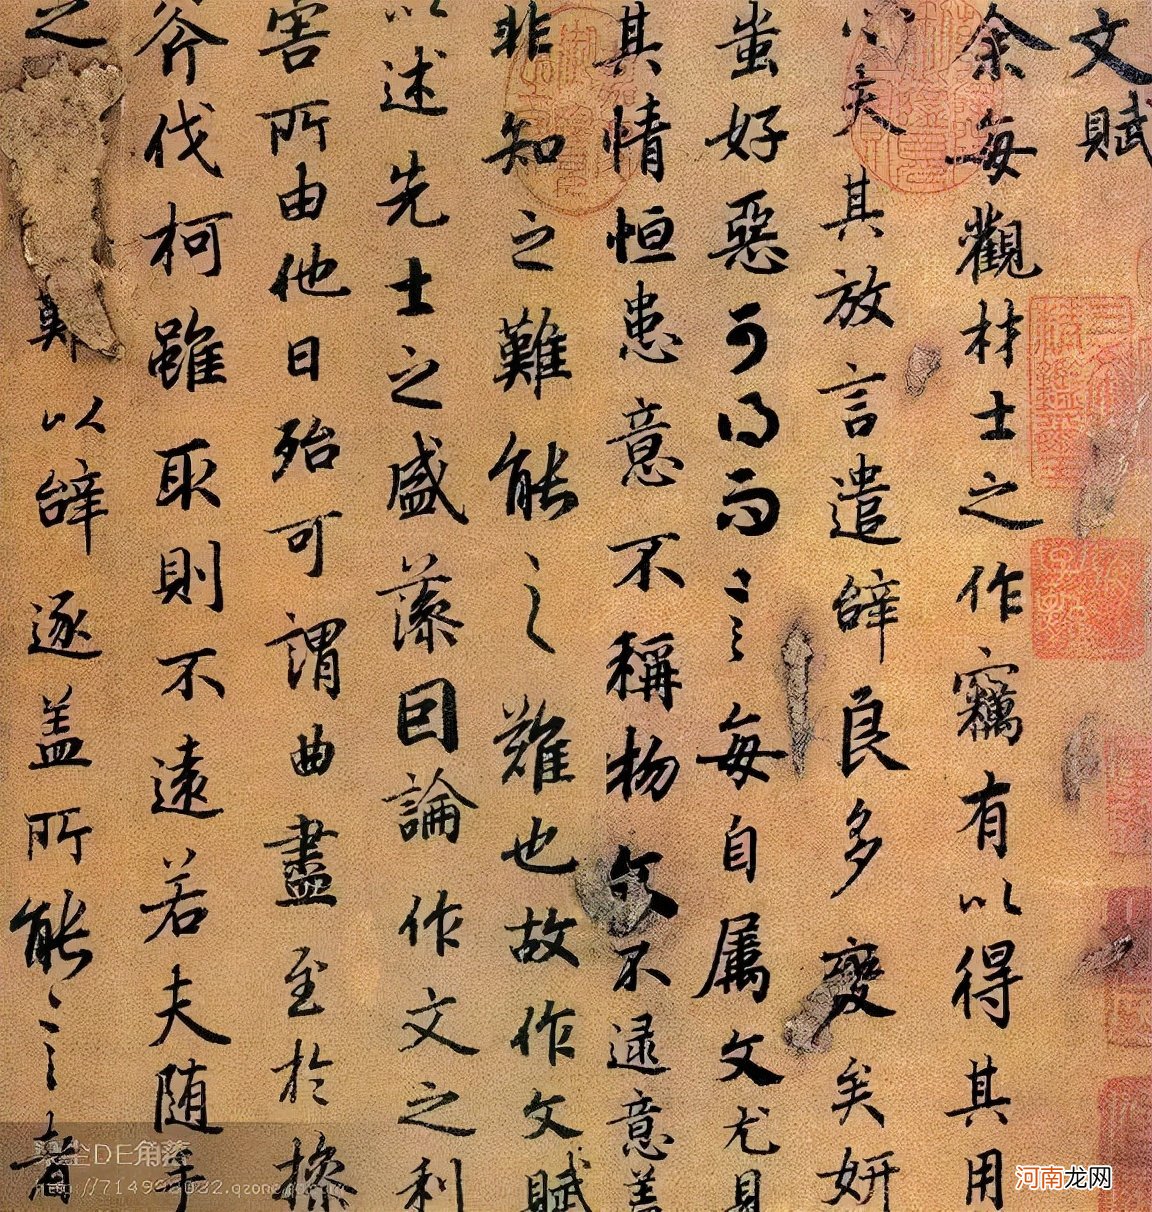 文賦
余每觀材士之作竊有以得其用
心夫其放言遣辭良多變矣妍
蚩好惡可得而言每自属文尤見
其情恒患意不稱物文不逮意盖
非知之難能之難也故作文賦
以述先士之盛藻因論作文之利
害所由他日殆可謂曲盡至於操
斧伐柯雖取則不遠若夫随手
之難以辭逐盖所能言者
DE角落
河南龙网